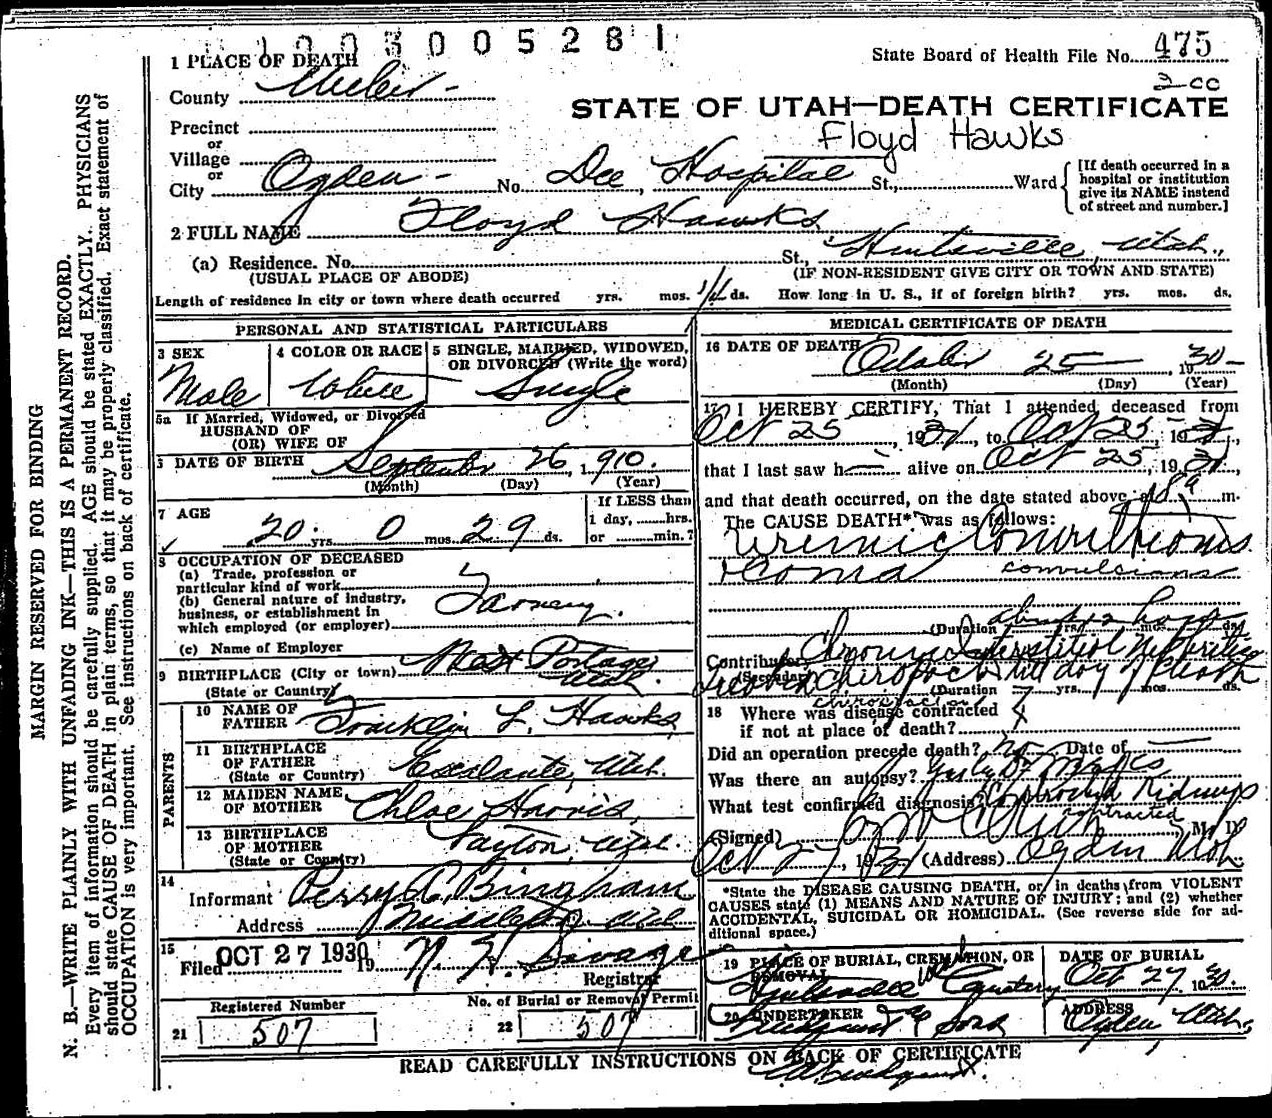 1003005281
State Board of Health File No. 475
2 cc
1 PLACE OF DEATH
County Weber
STATE OF UTAH—DEATH CERTIFICATE
Floyd Hawks
Precinct
or
Village
or
City Ogden No. Dee Hospital St., Ward
[If death occurred in a hospital or institution give its NAME instead of street and number.]
2 FULL NAME Floyd Hawks
(a) Residence. No. St., Huntsville, Utah.,
(USUAL PLACE OF ABODE) (IF NON-RESIDENT GIVE CITY OR TOWN AND STATE)
Length of residence in city or town where death occurred yrs. mos. ds. How long in U. S., if of foreign birth? yrs. mos. ds.
PERSONAL AND STATISTICAL PARTICULARS
3 SEX
Male
4 COLOR OR RACE
White
5 SINGLE, MARRIED, WIDOWED, OR DIVORCED (Write the word)
Single
5a If Married, Widowed, or Divorced
HUSBAND OF
(OR) WIFE OF
DATE OF BIRTH September 26, 1910.
(Month) (Day) (Year)
7 AGE
20 yrs. 0 mos. 29 ds.
If LESS than
1 day, hrs.
or min.?
8 OCCUPATION OF DECEASED
(a) Trade, profession or
particular kind of work
(b) General nature of industry,
business, or establishment in
which employed (or employer)
(c) Name of Employer
9 BIRTHPLACE (City or town) West Portage
(State or Country) Utah.
PARENTS
10 NAME OF
FATHER Franklin L. Hawks,
11 BIRTHPLACE
OF FATHER
(State or Country) Escalante, Utah.
12 MAIDEN NAME
OF MOTHER Chloe Harris,
13 BIRTHPLACE
OF MOTHER
(State or Country) Payton, Utah.
14
Informant Perry C. Bingham
Address Middleton Utah
15
Filed OCT 27 1930 19
Registrar
Registered Number
21 507
No. of Burial or Removal Permit
22 507
MEDICAL CERTIFICATE OF DEATH
16 DATE OF DEATH October 25 1930
(Month) (Day) (Year)
17 I HEREBY CERTIFY, That I attended deceased from
Oct 25, 19 , to Oct 25, 19
that I last saw h alive on Oct 25, 19
and that death occurred, on the date stated above at m.
The CAUSE DEATH* was as follows:
Uremic Convultions
Coma convulsions
(Duration yrs. mos. ds.
Contributory Chronic Interstitial Nephritis
(Secondary)
chiropractor
(Duration yrs. mos. ds.
18 Where was disease contracted
if not at place of death?
Did an operation precede death? no Date of
Was there an autopsy?
What test confirmed diagnosis? Kidneys
contracted
(Signed) M. D.
Oct 27, 19 (Address) Ogden Utah.
*State the DISEASE CAUSING DEATH, or, in deaths from VIOLENT CAUSES state (1) MEANS AND NATURE OF INJURY; and (2) whether ACCIDENTAL, SUICIDAL OR HOMICIDAL. (See reverse side for additional space.)
19 PLACE OF BURIAL, CREMATION, OR REMOVAL
Huntsville Utah Cemetery
DATE OF BURIAL
Oct 27 1930.
20 UNDERTAKER
& Sons
ADDRESS
Ogden Utah,
READ CAREFULLY INSTRUCTIONS ON BACK OF CERTIFICATE
MARGIN RESERVED FOR BINDING
N. B.—WRITE PLAINLY WITH UNFADING INK—THIS IS A PERMANENT RECORD.
Every item of information should be carefully supplied. AGE should be stated EXACTLY. PHYSICIANS
should state CAUSE OF DEATH in plain terms, so that it may be properly classified. Exact statement of
OCCUPATION is very important. See instructions on back of certificate.